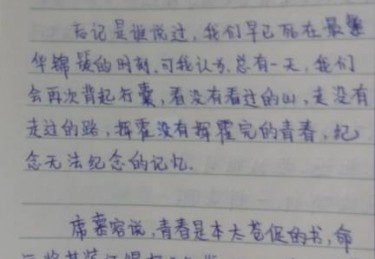 忘记是谁说过,我们早已死在最繁
华锦簇的时刻.可我认为.总有一天.我们
会再次背起行囊,看没有看过的山,走没有
走过的路,挥霍没有挥霍完的青春,纪
念无法纪念的记忆.
席慕容说,青春是本太苍促的书,命